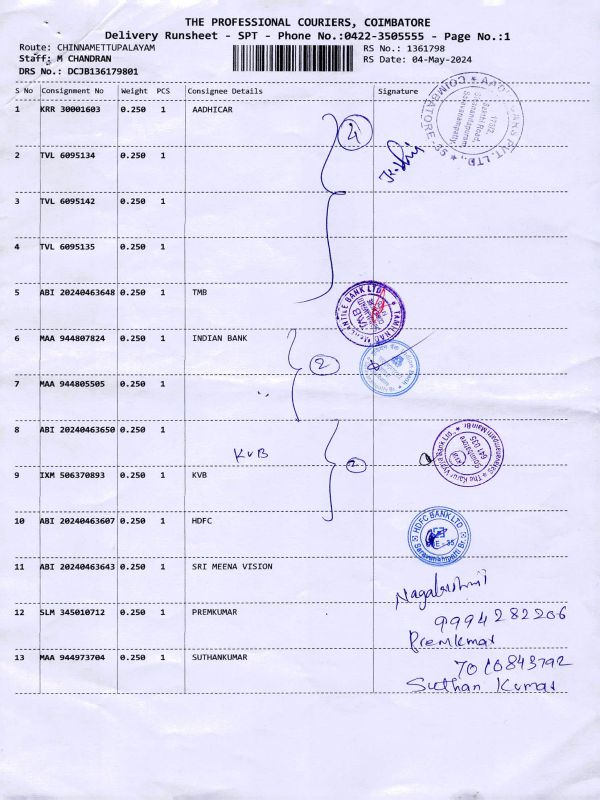 THE PROFESSIONAL COURIERS, COIMBATORE
Delivery Runsheet - SPT - Phone No.:0422-3505555 - Page No.:1
Route: CHINNAMETTUPALAYAM RS No.: 1361798
Staff: M CHANDRAN RS Date: 04-May-2024
DRS No.: DCJB136179801
S No Consignment No Weight PCS Consignee Details Signature
1 KRR 30001603 0.250 1 AADHICAR
4
2 TVL 6095134 0.250 1
3 TVL 6095142 0.250 1
4 TVL 6095135 0.250 1
5 ABI 20240463648 0.250 1 TMB
6 MAA 944807824 0.250 1 INDIAN BANK
2
7 MAA 944805505 0.250 1
8 ABI 20240463650 0.250 1
KVB 2
9 IXM 506370893 0.250 1 KVB
10 ABI 20240463607 0.250 1 HDFC
HDFC BANK LTD
11 ABI 20240463643 0.250 1 SRI MEENA VISION
12 SLM 345010712 0.250 1 PREMKUMAR
9994282206
Premkumar
13 MAA 944973704 0.250 1 SUTHANKUMAR
7010843792
Suthan Kumar